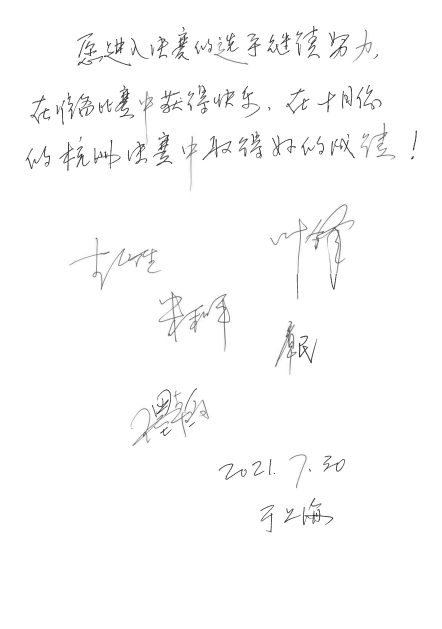 愿进入决赛的选手继续努力,
在准备比赛中获得快乐. 在十月份
的杭州决赛中取得好的成绩!
叶锋
章民
2021. 7. 30
于上海